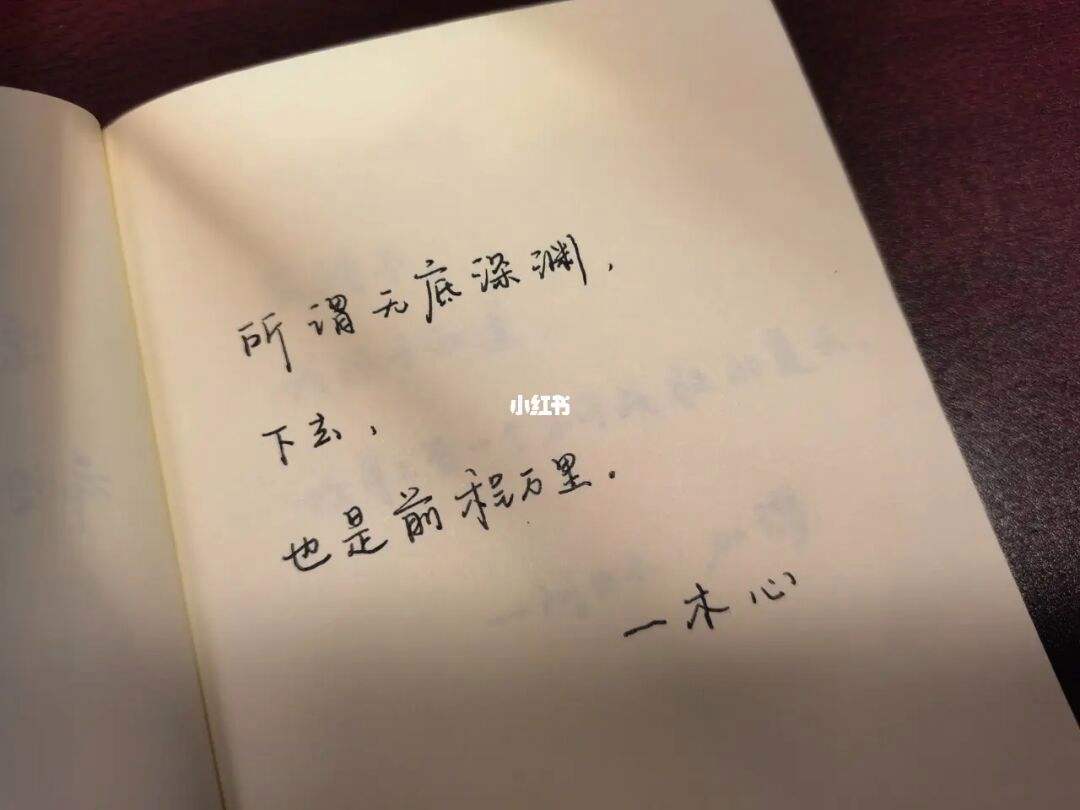 所谓无底深渊，
下去，
也是前程万里。
—木心
小红书